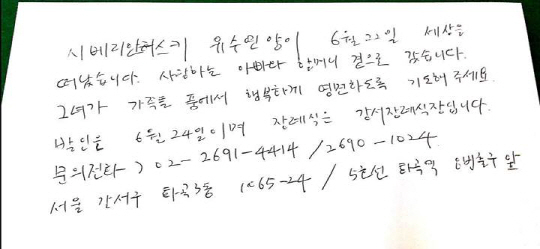 시베리안허스키 유수연양이 6월 22일 세상을
떠났습니다. 사랑하는 아빠와 할머니 곁으로 갔습니다.
그녀가 가족들 품에서 행복하게 영면하도록 기도해 주세요.
발인은 6월 24일이며 장례식은 강서장례식장입니다.
문의전화) 02-2691-4414 / 2690-1024
서울 강서구 화곡3동 1065-24 / 5호선 화곡역 6번출구 앞